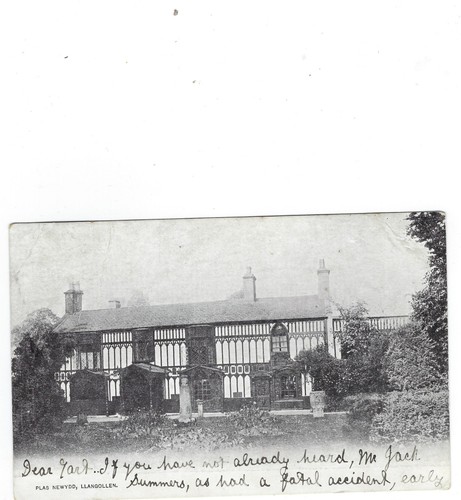 Dear Tart.. If you have not already heard, Mr Jack
Summers, as had a fatal accident, early
PLAS NEWYDD, LLANGOLLEN.